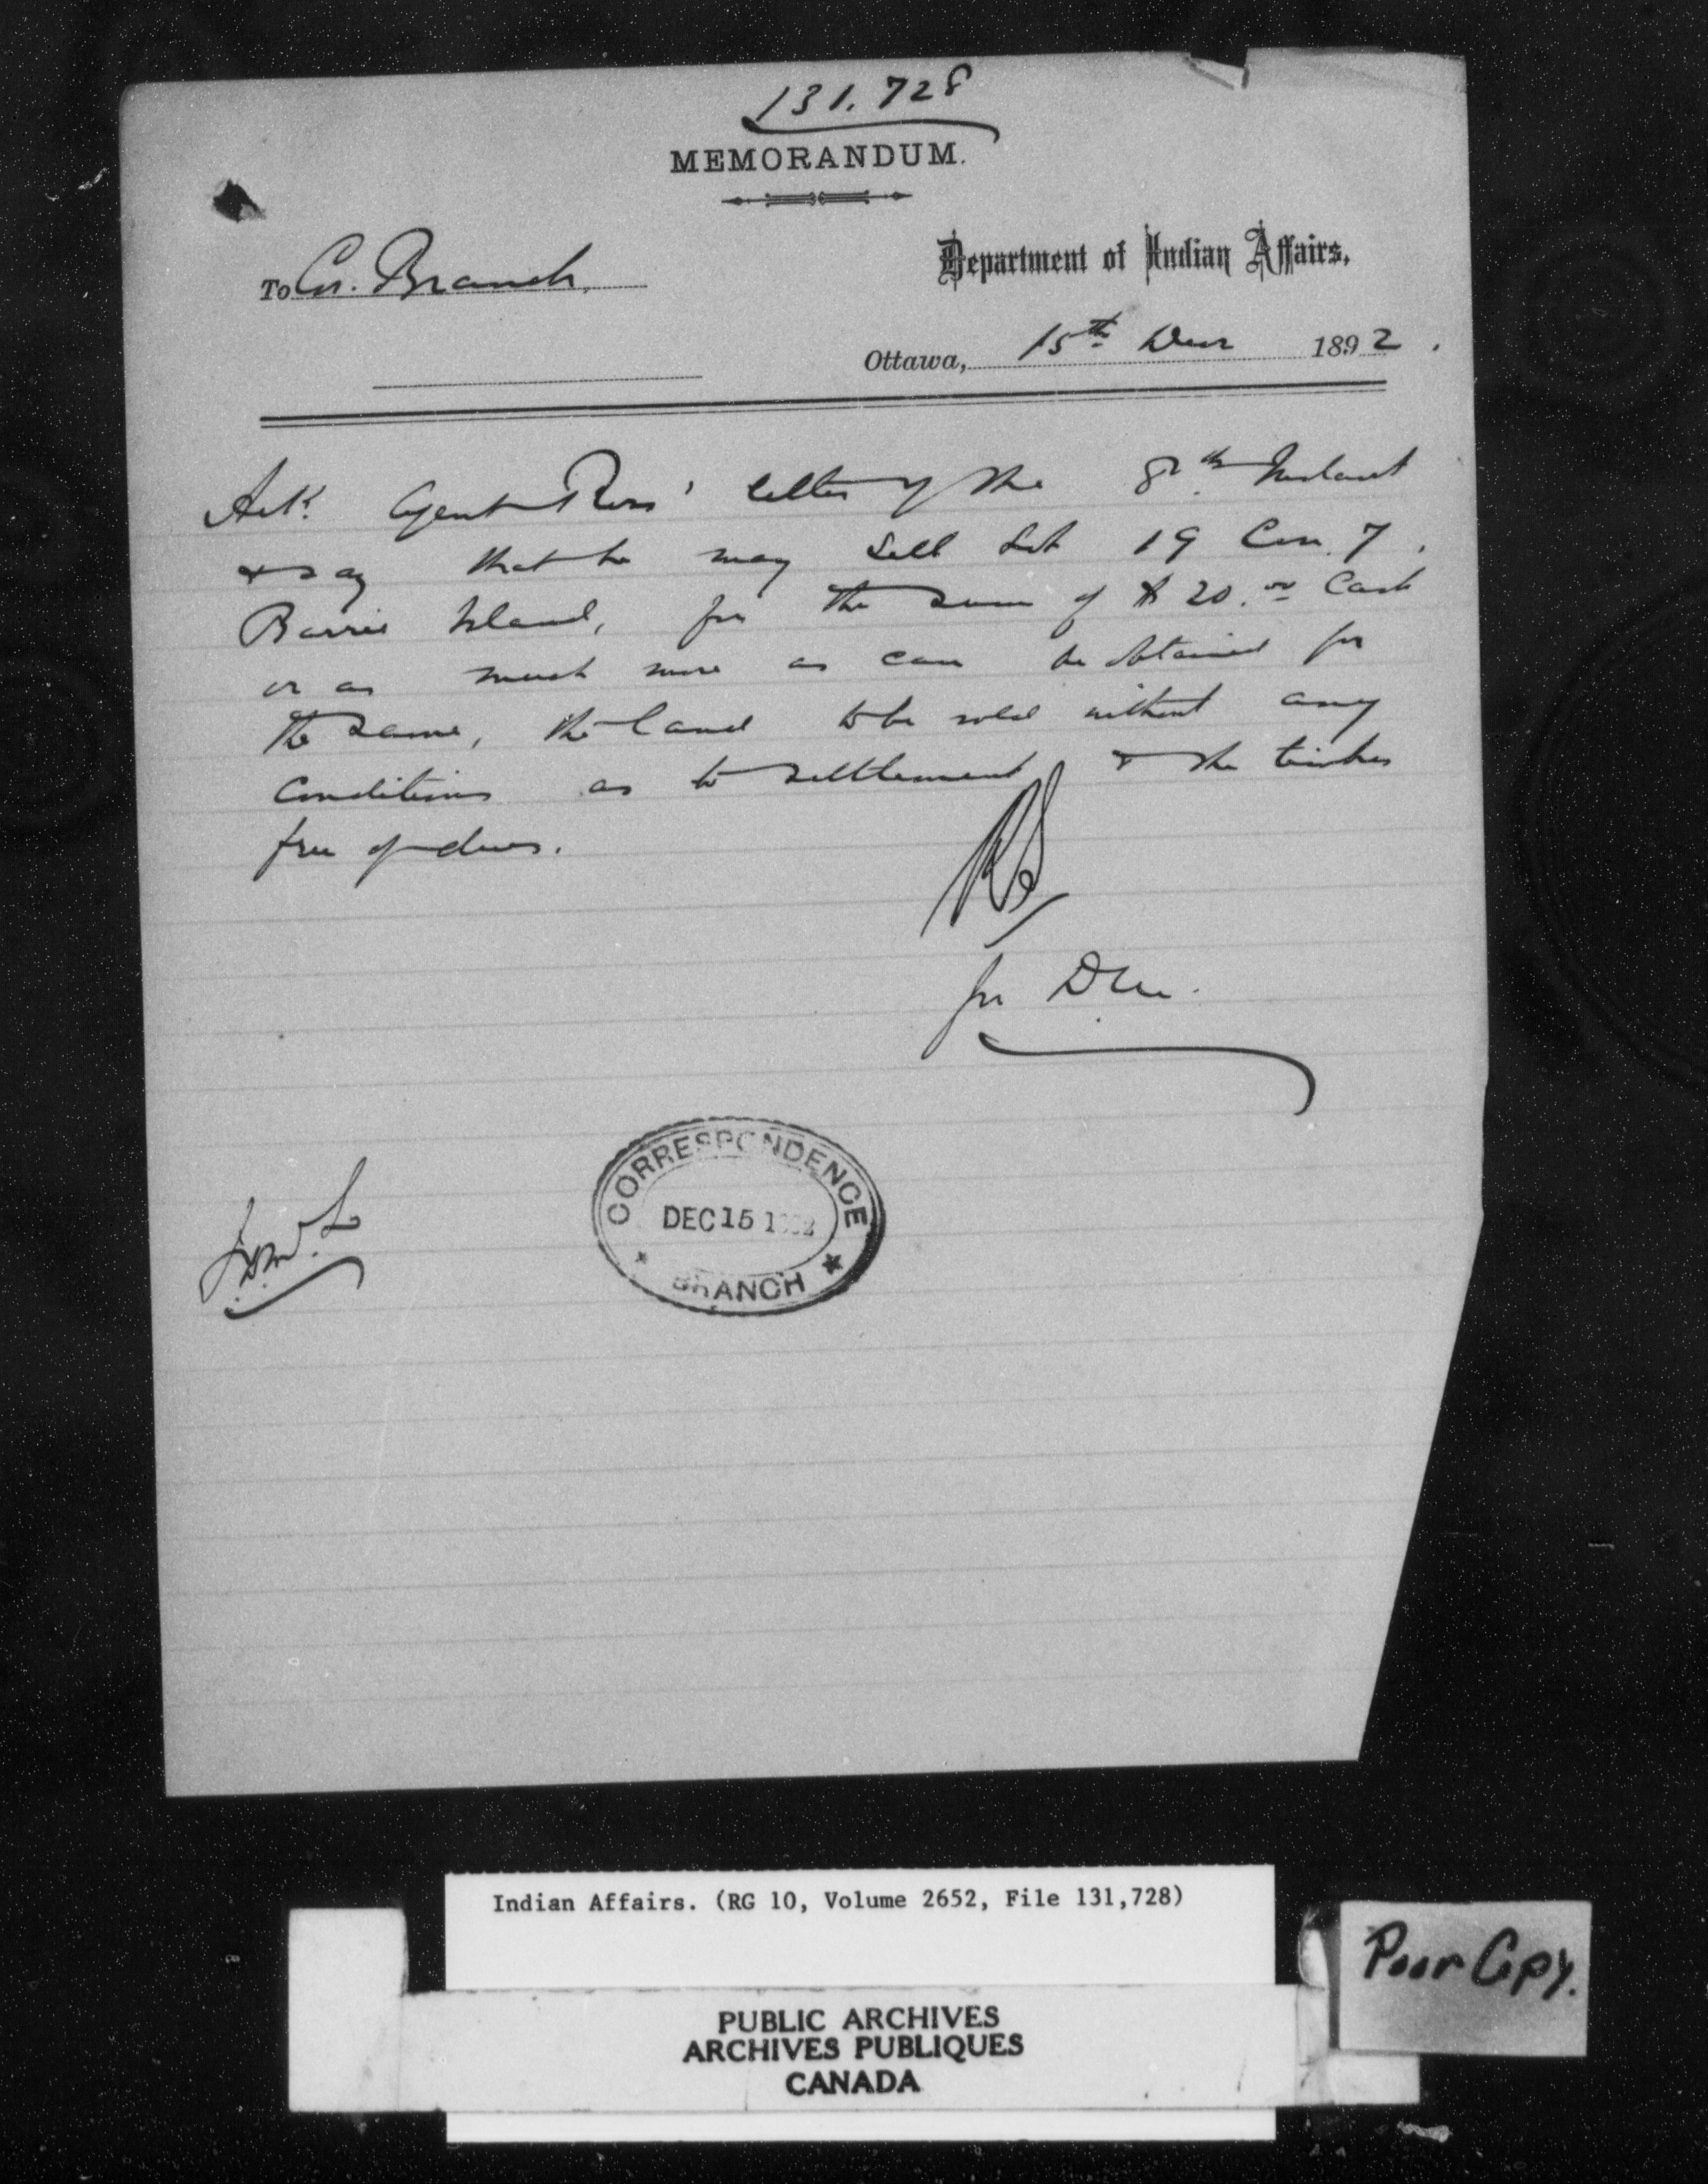 131.728
MEMORANDUM.
Department of Indian Affairs,
To Cor. Branch.
Ottawa, 15th Decr 1892.
Ack. Agent Ross' letter of the 8th Instant
& say that he may sell Lot 19 Con. 7.
Barrie Island, for the sum of $20.00 Cash
or as much more as can be obtained for
the same, the land to be sold without any
Conditions as to settlement & the timber
free of dues.
RS
for
CORRESPONDENCE
DEC 15 1892
BRANCH
Indian Affairs. (RG 10, Volume 2652, File 131,728)
Poor Copy.
PUBLIC ARCHIVES
ARCHIVES PUBLIQUES
CANADA